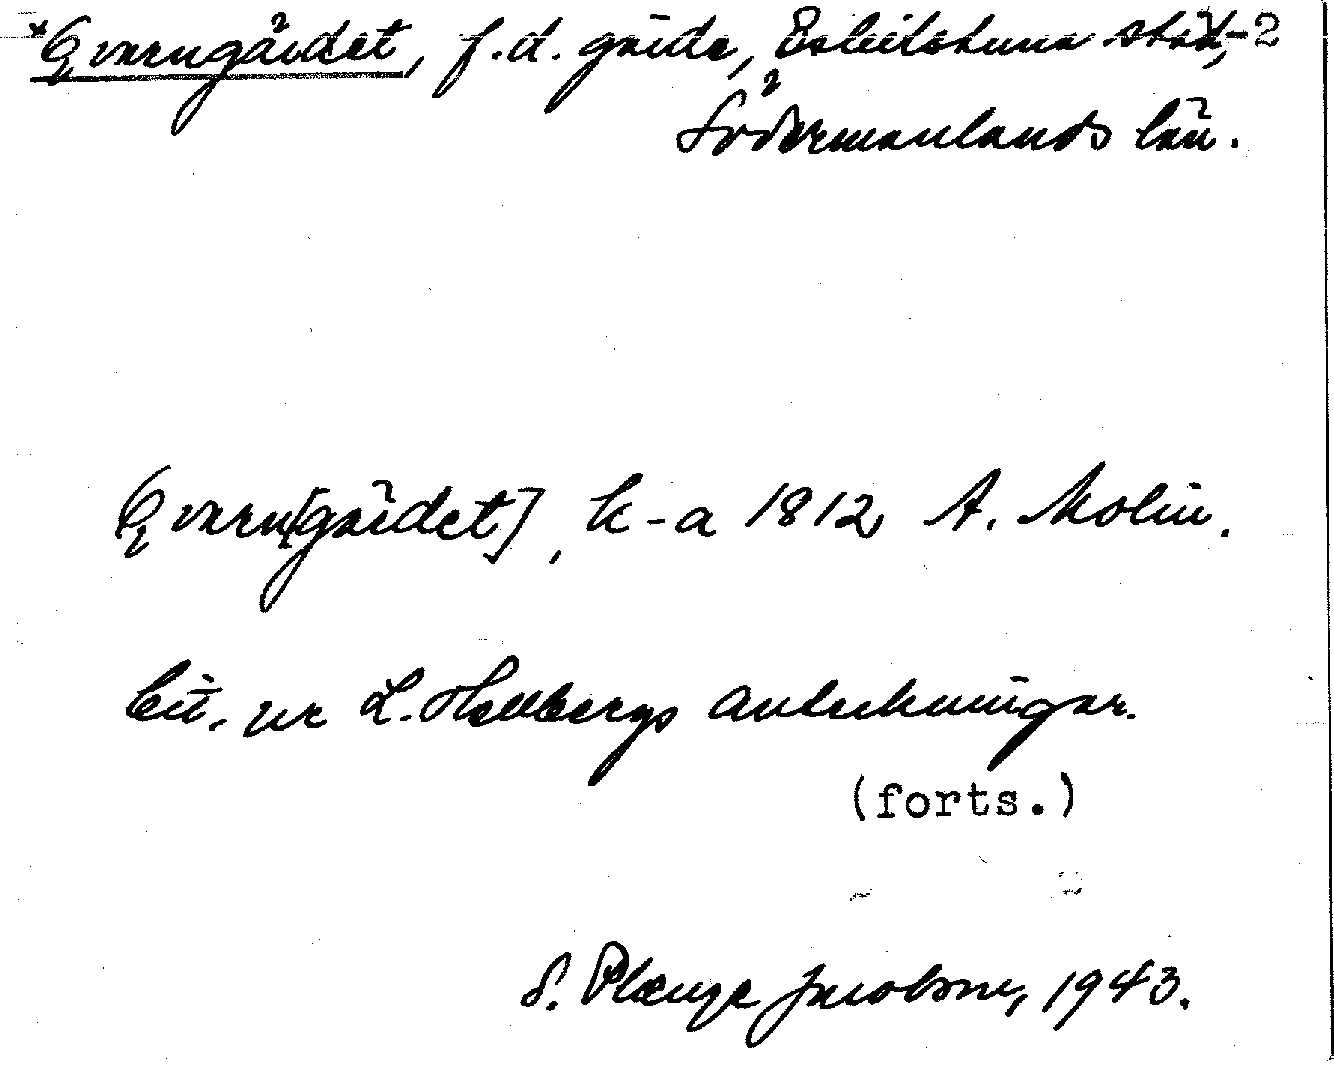 *Qvarngärdet, f.d. gärde, Eskilstuna stad, -2
Södermanlands län.
Qvarn[gärdet], k-a 1812 A. Molin.
Cit. ur L. Hellbergs anteckningar.
(forts.)
S. Plenge Jacobson, 1943.